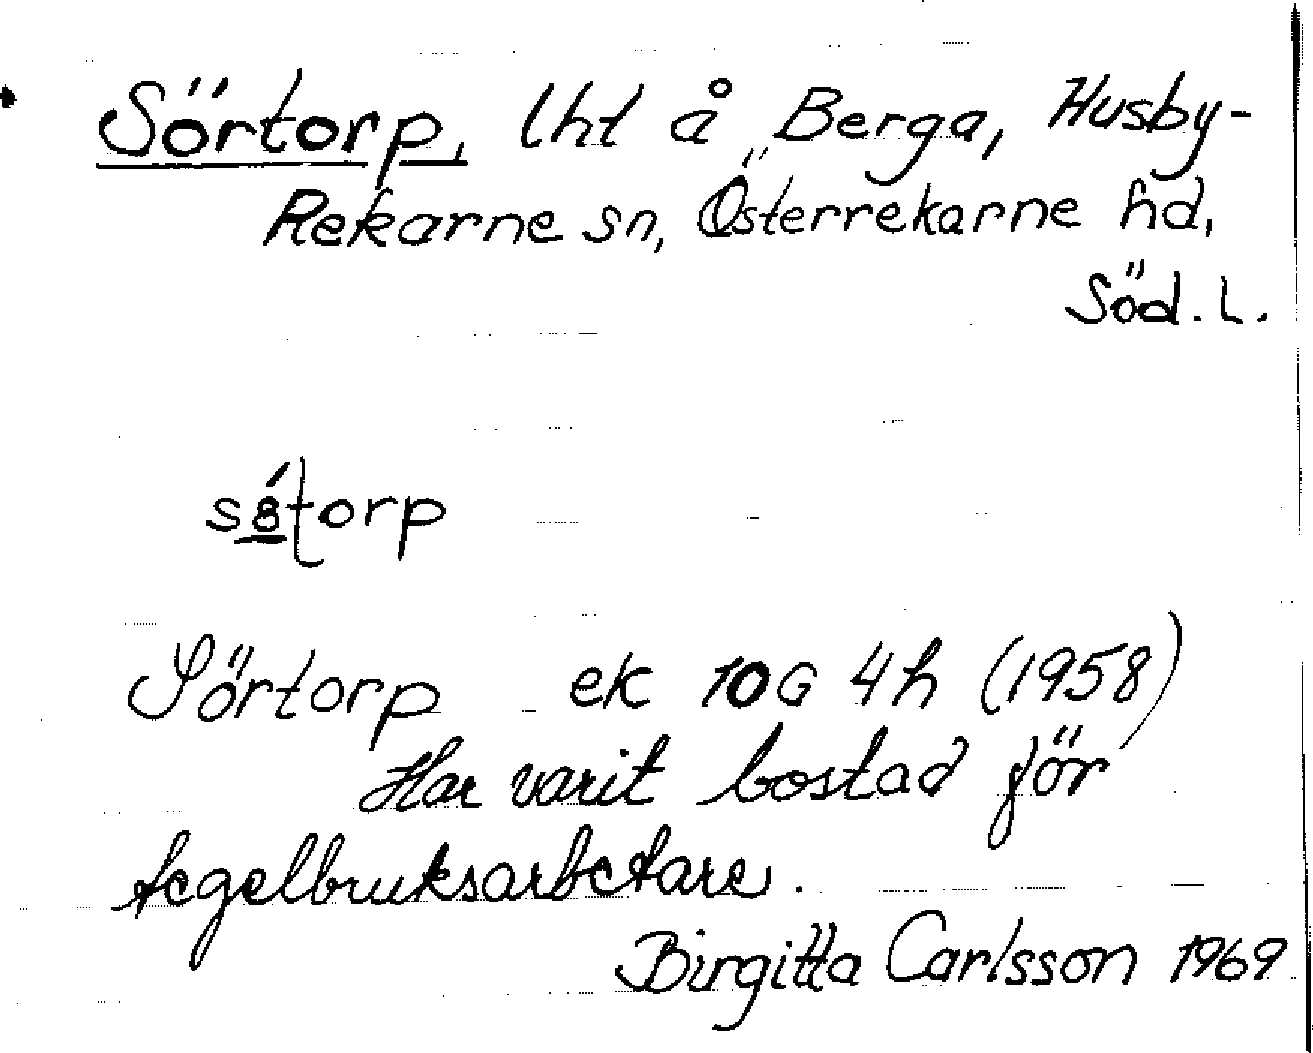 Sörtorp, lht å Berga, Husby-
Rekarne sn, Österrekarne hd,
Söd. L.
Sörtorp ek 10G 4h (1958)
Har varit bostad för
tegelbruksarbetare.
Birgitta Carlsson 1969